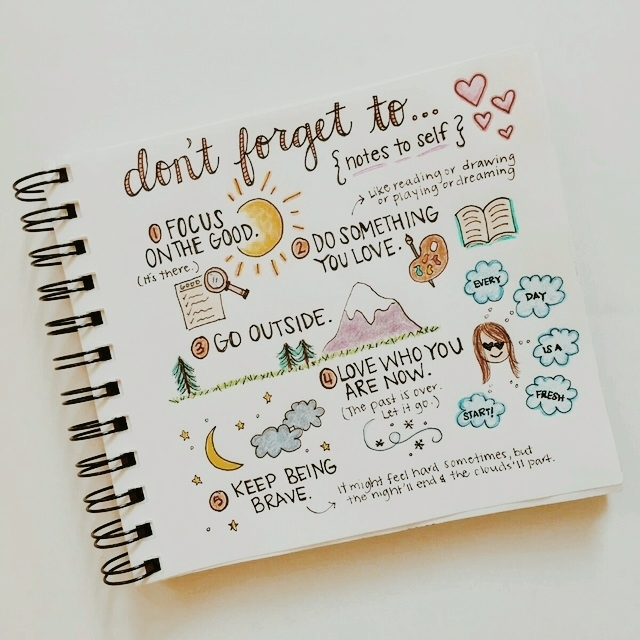 don't forget to...
{notes to self}
Like reading or drawing
or playing or dreaming
① FOCUS
ON THE GOOD.
(it's there.)
GOOD
② DO SOMETHING
YOU LOVE.
③ GO OUTSIDE.
④ LOVE WHO YOU
ARE NOW.
(The past is over.
Let it go.)
EVERY
DAY
IS A
FRESH
START!
⑤ KEEP BEING
BRAVE.
it might feel hard sometimes, but
the night'll end & the clouds'll part.